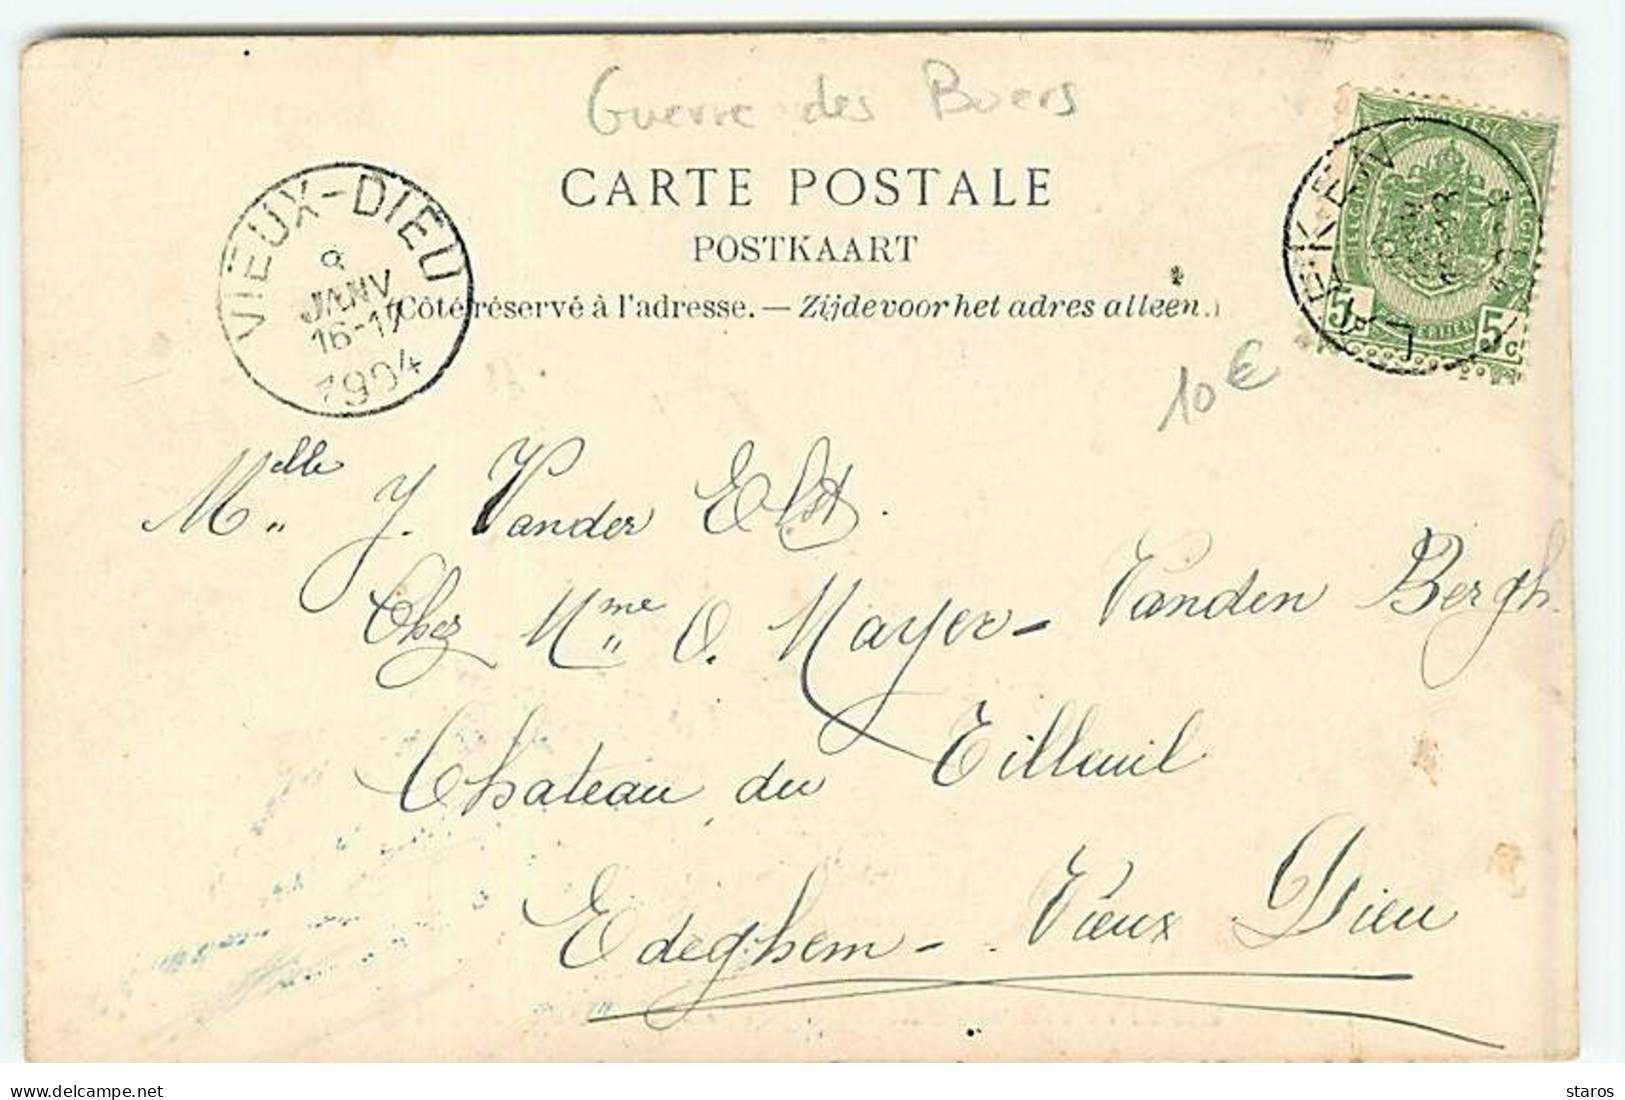 Guerre des Boers
CARTE POSTALE
POSTKAART
(Côté réservé à l'adresse. — Zijde voor het adres alleen.)
VIEUX-DIEU
8
JANV
16-17
1904
5 5c
10 €
Melle J. Vander Elst.
Chez Mme O. Mayer - Vanden Bergh.
Chateau du Tilleuil
Edeghem - Vieux Dieu
delcampe.net
staros